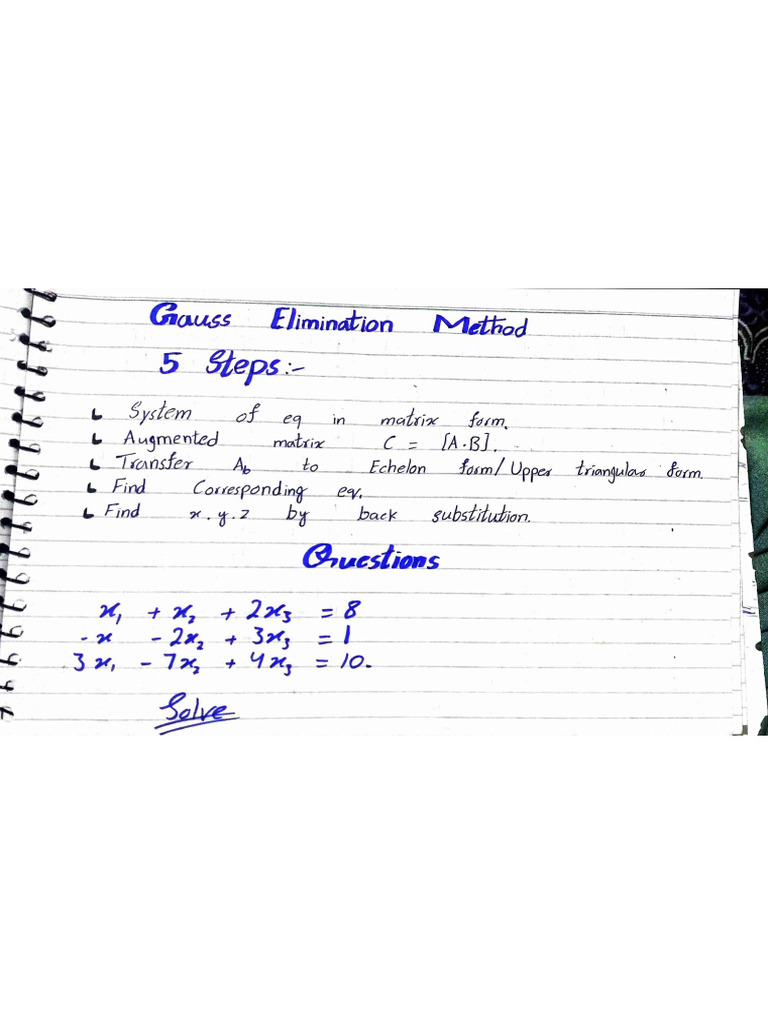 Gauss Elimination Method
5 Steps:-
System of eq in matrix form.
Augmented matrix C = [A.B].
Transfer Ab to Echelon form/Upper triangular form.
Find Corresponding eq.
Find x.y.z by back substitution.
Questions
x₁ + x₂ + 2x₃ = 8
-x - 2x₂ + 3x₃ = 1
3x₁ - 7x₂ + 4x₃ = 10.
Solve